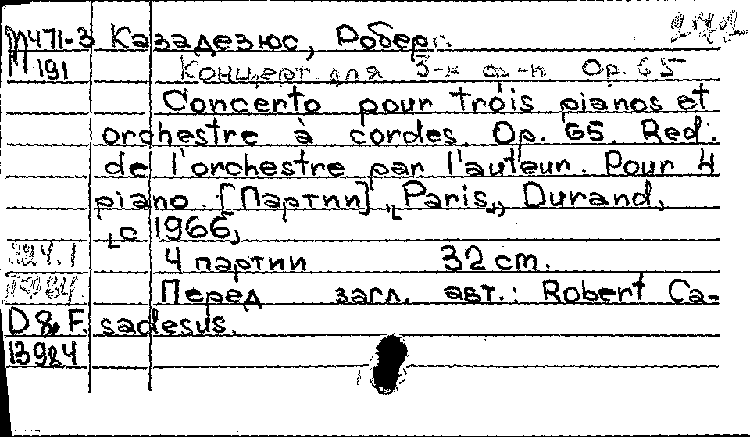 М471-3 Казадезюс, Робер.
М 191 Концерт для 3-х ф-п Op. 65
Concerto pour trois pianos et
orchestre à cordes. Op. 65. Red.
de l'orchestre par l'auteur. Pour 4
piano. [Партии] „Paris„, Durand,
c 1966,
4 партии 32 cm.
Перед загл. авт.: Robert Ca-
D & F. sadesus.
13924